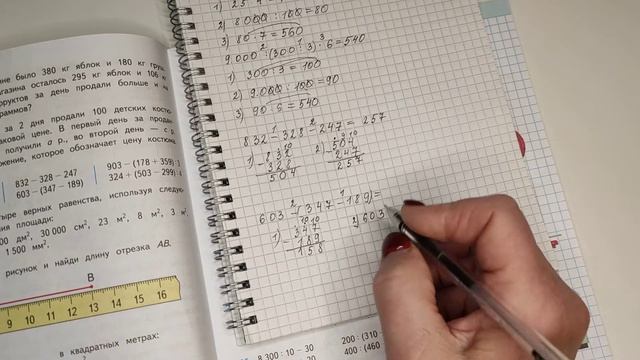 не было 380 кг яблок и 180 кг груш
газина осталось 295 кг яблок и 106 кг
фруктов за день продали больше и на
раммов?
за 2 дня продали 100 детских костю-
аковой цене. В первый день за прода-
получили a р., во второй день — c р.
жение, которое обозначает цену костюма
832 - 328 - 247
603 - (347 - 189)
903 - (178 + 359)
324 + (503 - 299)
тыре верных равенства, используя следу
ия площади:
00 дм², 30 000 см², 23 м², 8 м², 3 м
1 500 мм².
рисунок и найди длину отрезка AB.
B
9 10 11 12 13 14 15 16 17 18
в квадратных метрах:
8 300 : 10 - 30
200 : (310
400 : (460
2) 8000 : 100 = 80
3) 80 · 7 = 560
9.000 : (300 : 3) · 6 = 540
2 1 3
1) 300 : 3 = 100
2) 9.000 : 100 = 90
3) 90 · 6 = 540
832 - 328 - 247 = 257
1 2
1) - 832
328
504
2) - 504
247
257
603 - (347 - 189) =
2 1
1) - 347
189
158
2) 603